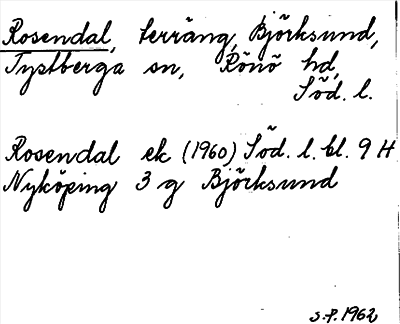 Rosendal, terräng, Björksund,
Tystberga sn, Rönö hd,
Söd. l.
Rosendal ek (1960) Söd. l. bl. 9 H
Nyköping 3 g Björksund
S.P. 1962